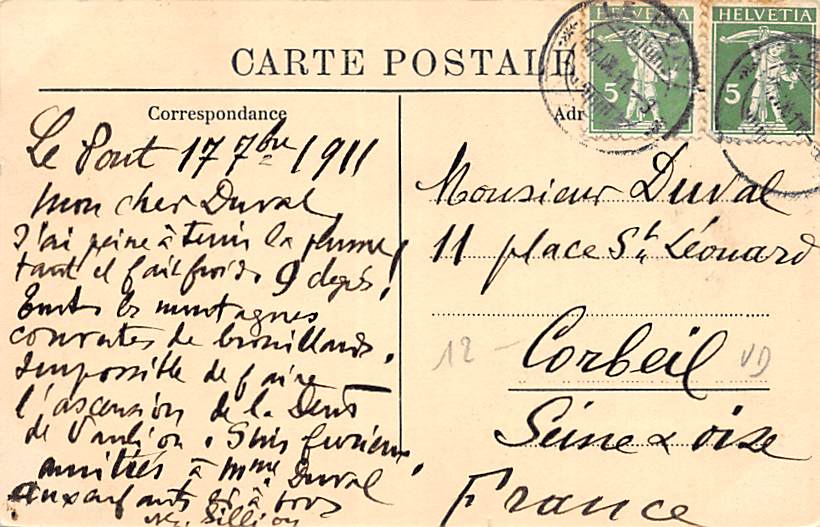 CARTE POSTALE
Correspondance
Adr
HELVETIA
5
HELVETIA
5
Le Pont 17 7bre 1911
Mon cher Duval
J'ai peine à tenir la plume
tant il fait froid. 9 degrés!
Toutes les montagnes
couvertes de brouillards.
Impossible de faire
l'ascension de la Dent
de Vaulion. Suis furieux!
amitiés à Mme Duval
aux enfants et à vous
Monsieur Duval
11 place St Léonard
12 - Corbeil VD
Seine & oise
France